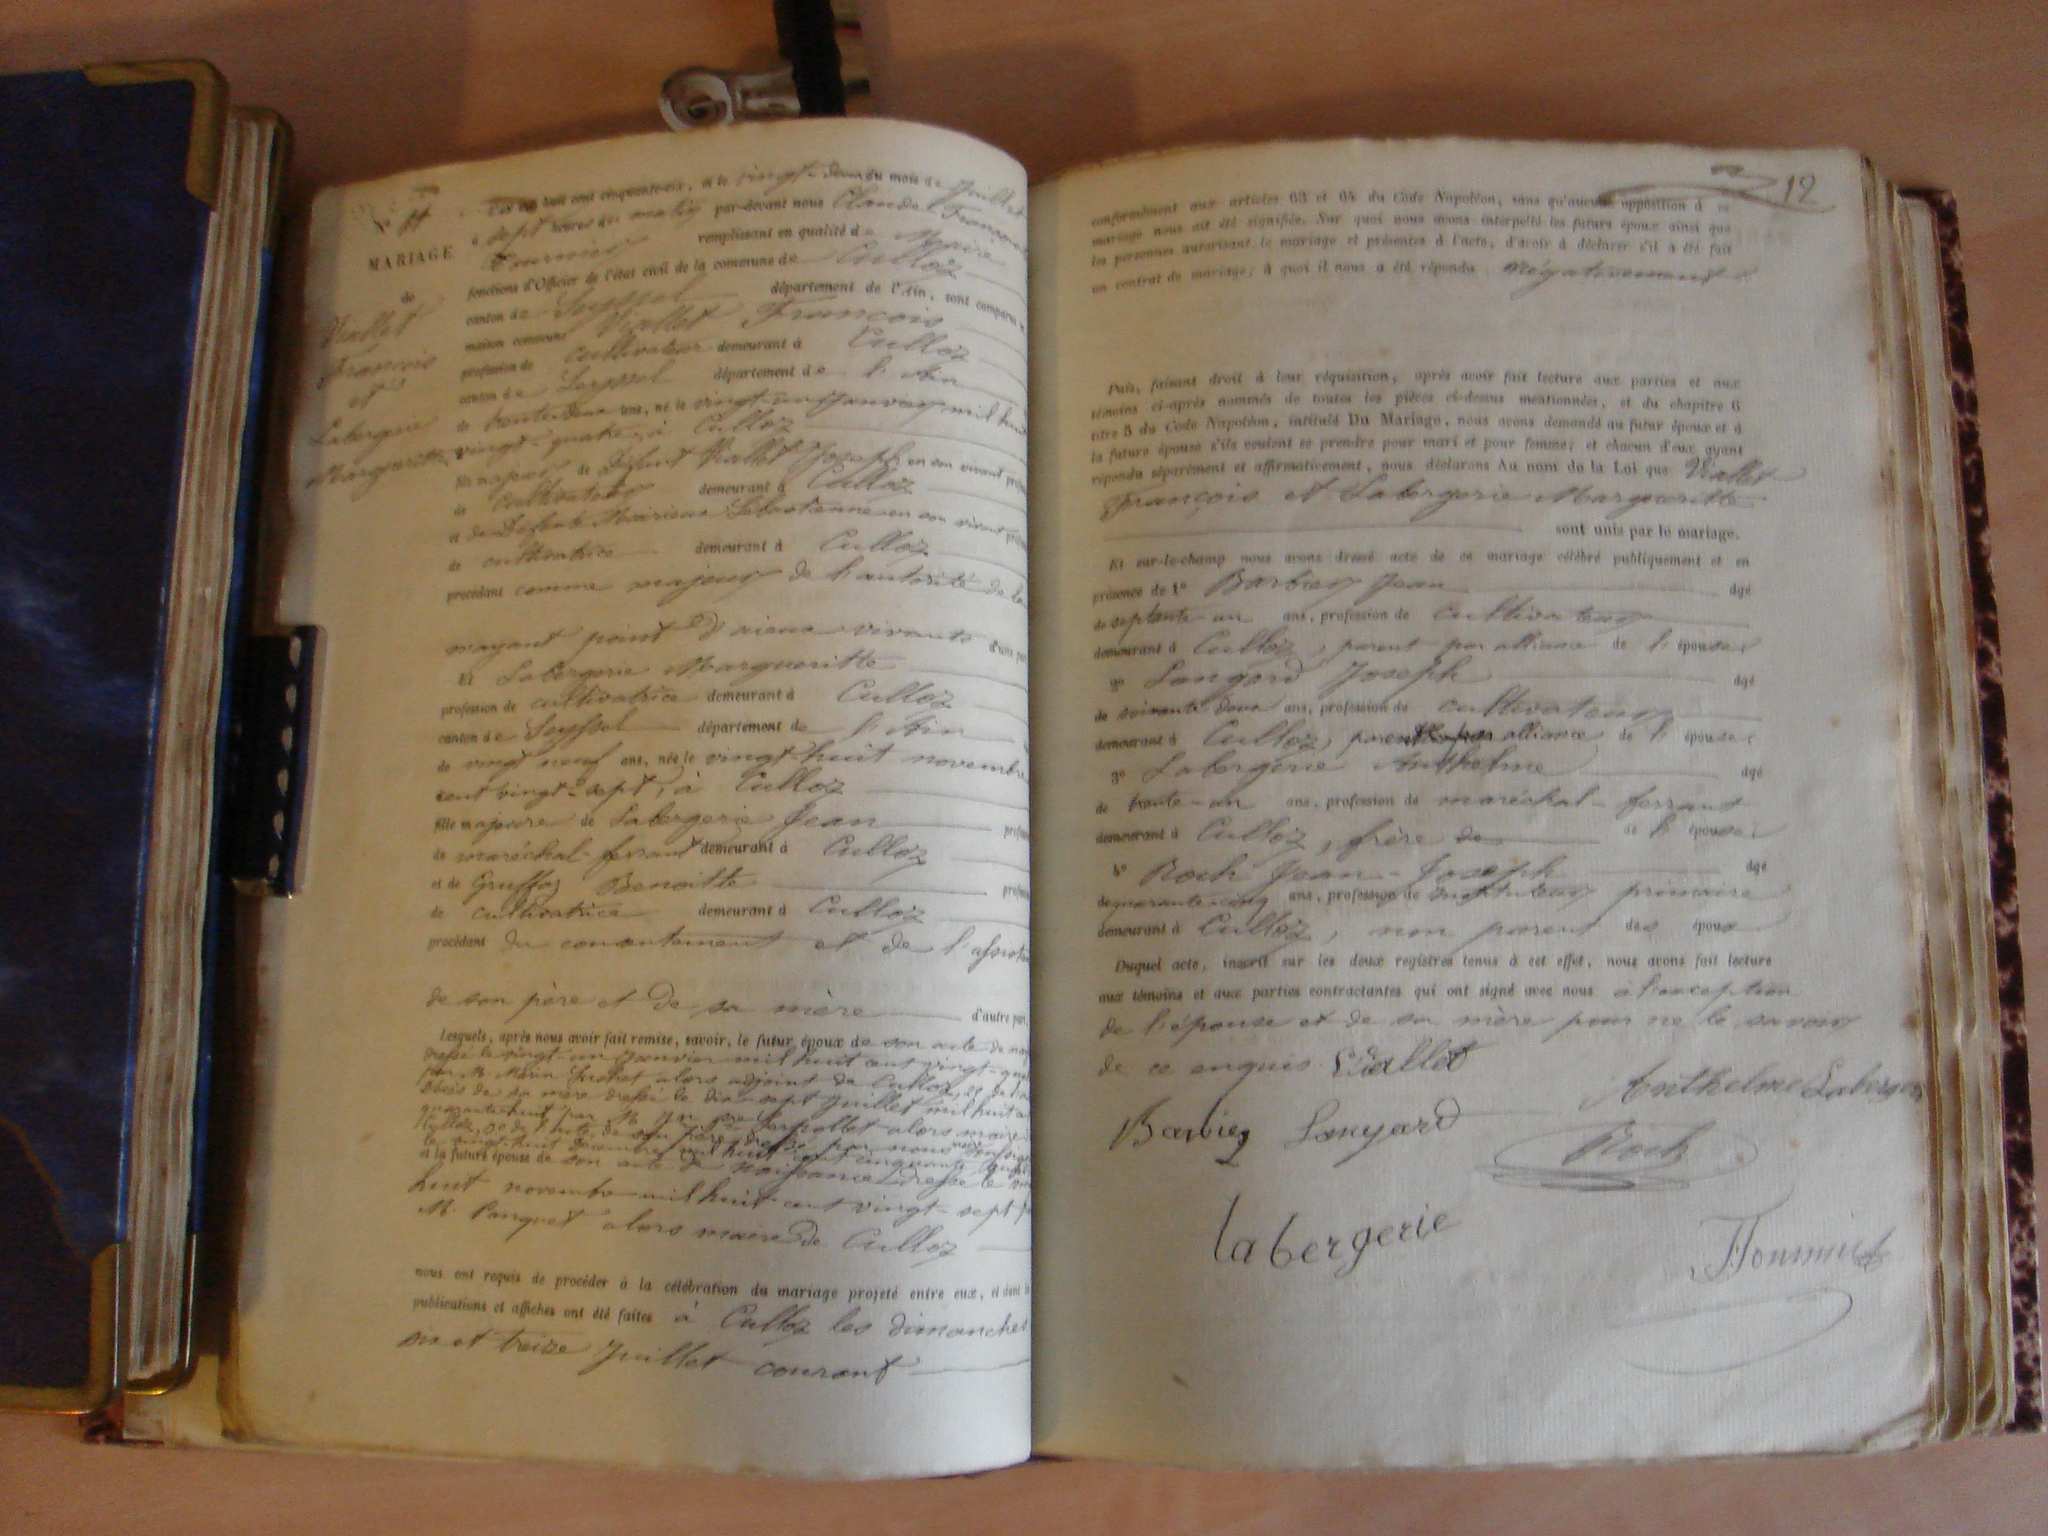 N° 11
MARIAGE
de
Viallet
François
et
Labergerie
Margueritte
huit cent cinquante-six, et le vingt-deux du mois de Juillet
à sept heures du matin par-devant nous Claude François
Fournier remplissant en qualité de Maire
fonctions d'Officier de l'état civil de la commune de Culloz
canton de Seyssel département de l'Ain, sont comparus
maison commune Viallet François
profession de cultivateur demeurant à Culloz
canton de Seyssel département de l'Ain
de trente-deux ans, né le vingt-un Janvier mil huit
vingt-quatre, à Culloz
fils majeur de Défunt Viallet Joseph en son vivant
de cultivateur demeurant à Culloz
et de Défunte Sébastienne en son vivant
de cultivatrice demeurant à Culloz
procédant comme majeur de l'autorité de
n'ayant point d'aieux vivants d'une part
Et Labergerie Margueritte
profession de cultivatrice demeurant à Culloz
canton de Seyssel département de l'Ain
de vingt neuf ans, née le vingt-huit novembre
cent vingt-sept, à Culloz
fille majeure de Labergerie Jean
de maréchal-ferrant demeurant à Culloz
et de Gruffaz Benoitte
de cultivatrice demeurant à Culloz
procédant du consentement et de l'assistan
de son père et de sa mère d'autre part,
Lesquels, après nous avoir fait remise, savoir, le futur époux de son acte de
dressé le vingt-un Janvier mil huit cent vingt-qua
par M. Marin alors adjoint de Culloz,
décès de sa mère dressé le dix-sept Juillet mil huit
quarante-huit par M. alors maire
Culloz, de l'acte de son père dressé par nous
le vingt-huit mil huit cent cinquante
et la future épouse de son acte de naissance dressé le
huit novembre mil huit cent vingt-sept
M. Panquet alors maire de Culloz
nous ont requis de procéder à la célébration du mariage projeté entre eux, et dont
publications et affiches ont été faites à Culloz les dimanches
six et treize Juillet courant
12
conformément aux articles 63 et 64 du Code Napoléon, sans qu'aucune opposition à ce
mariage nous ait été signifiée. Sur quoi nous avons interpellé les futurs époux ainsi que
les personnes autorisant le mariage et présentes à l'acte, d'avoir à déclarer s'il a été fait
un contrat de mariage; à quoi il nous a été répondu négativement
Puis, faisant droit à leur réquisition, après avoir fait lecture aux parties et aux
témoins ci-après nommés de toutes les pièces ci-dessus mentionnées, et du chapitre 6
titre 5 du Code Napoléon, intitulé Du Mariage, nous avons demandé au futur époux et à
la future épouse s'ils veulent se prendre pour mari et pour femme; et chacun d'eux ayant
répondu séparément et affirmativement, nous déclarons Au nom de la Loi que Viallet
François et Labergerie Margueritte
sont unis par le mariage.
Et sur-le-champ nous avons dressé acte de ce mariage célébré publiquement et en
présence de 1° Barbier Jean âgé
de septante-un ans, profession de cultivateur
demeurant à Culloz, parent par alliance de l'épouse
2° Lanyard Joseph âgé
de soixante deux ans, profession de cultivateur
demeurant à Culloz, alliance de l'épouse
3° Labergerie Anthelme âgé
de trente-un ans, profession de maréchal-ferrant
demeurant à Culloz, frère de de l'épouse
4° Roch Jean-Joseph âgé
de quarante-cinq ans, profession de instituteur primaire
demeurant à Culloz, non parent des époux
Duquel acte, inscrit sur les deux registres tenus à cet effet, nous avons fait lecture
aux témoins et aux parties contractantes qui ont signé avec nous à l'exception
de l'épouse et de sa mère pour ne le savoir
de ce enquis. Viallet
Anthelme Laberger
Barbier Lanyard
Roch
labergerie
Fournier